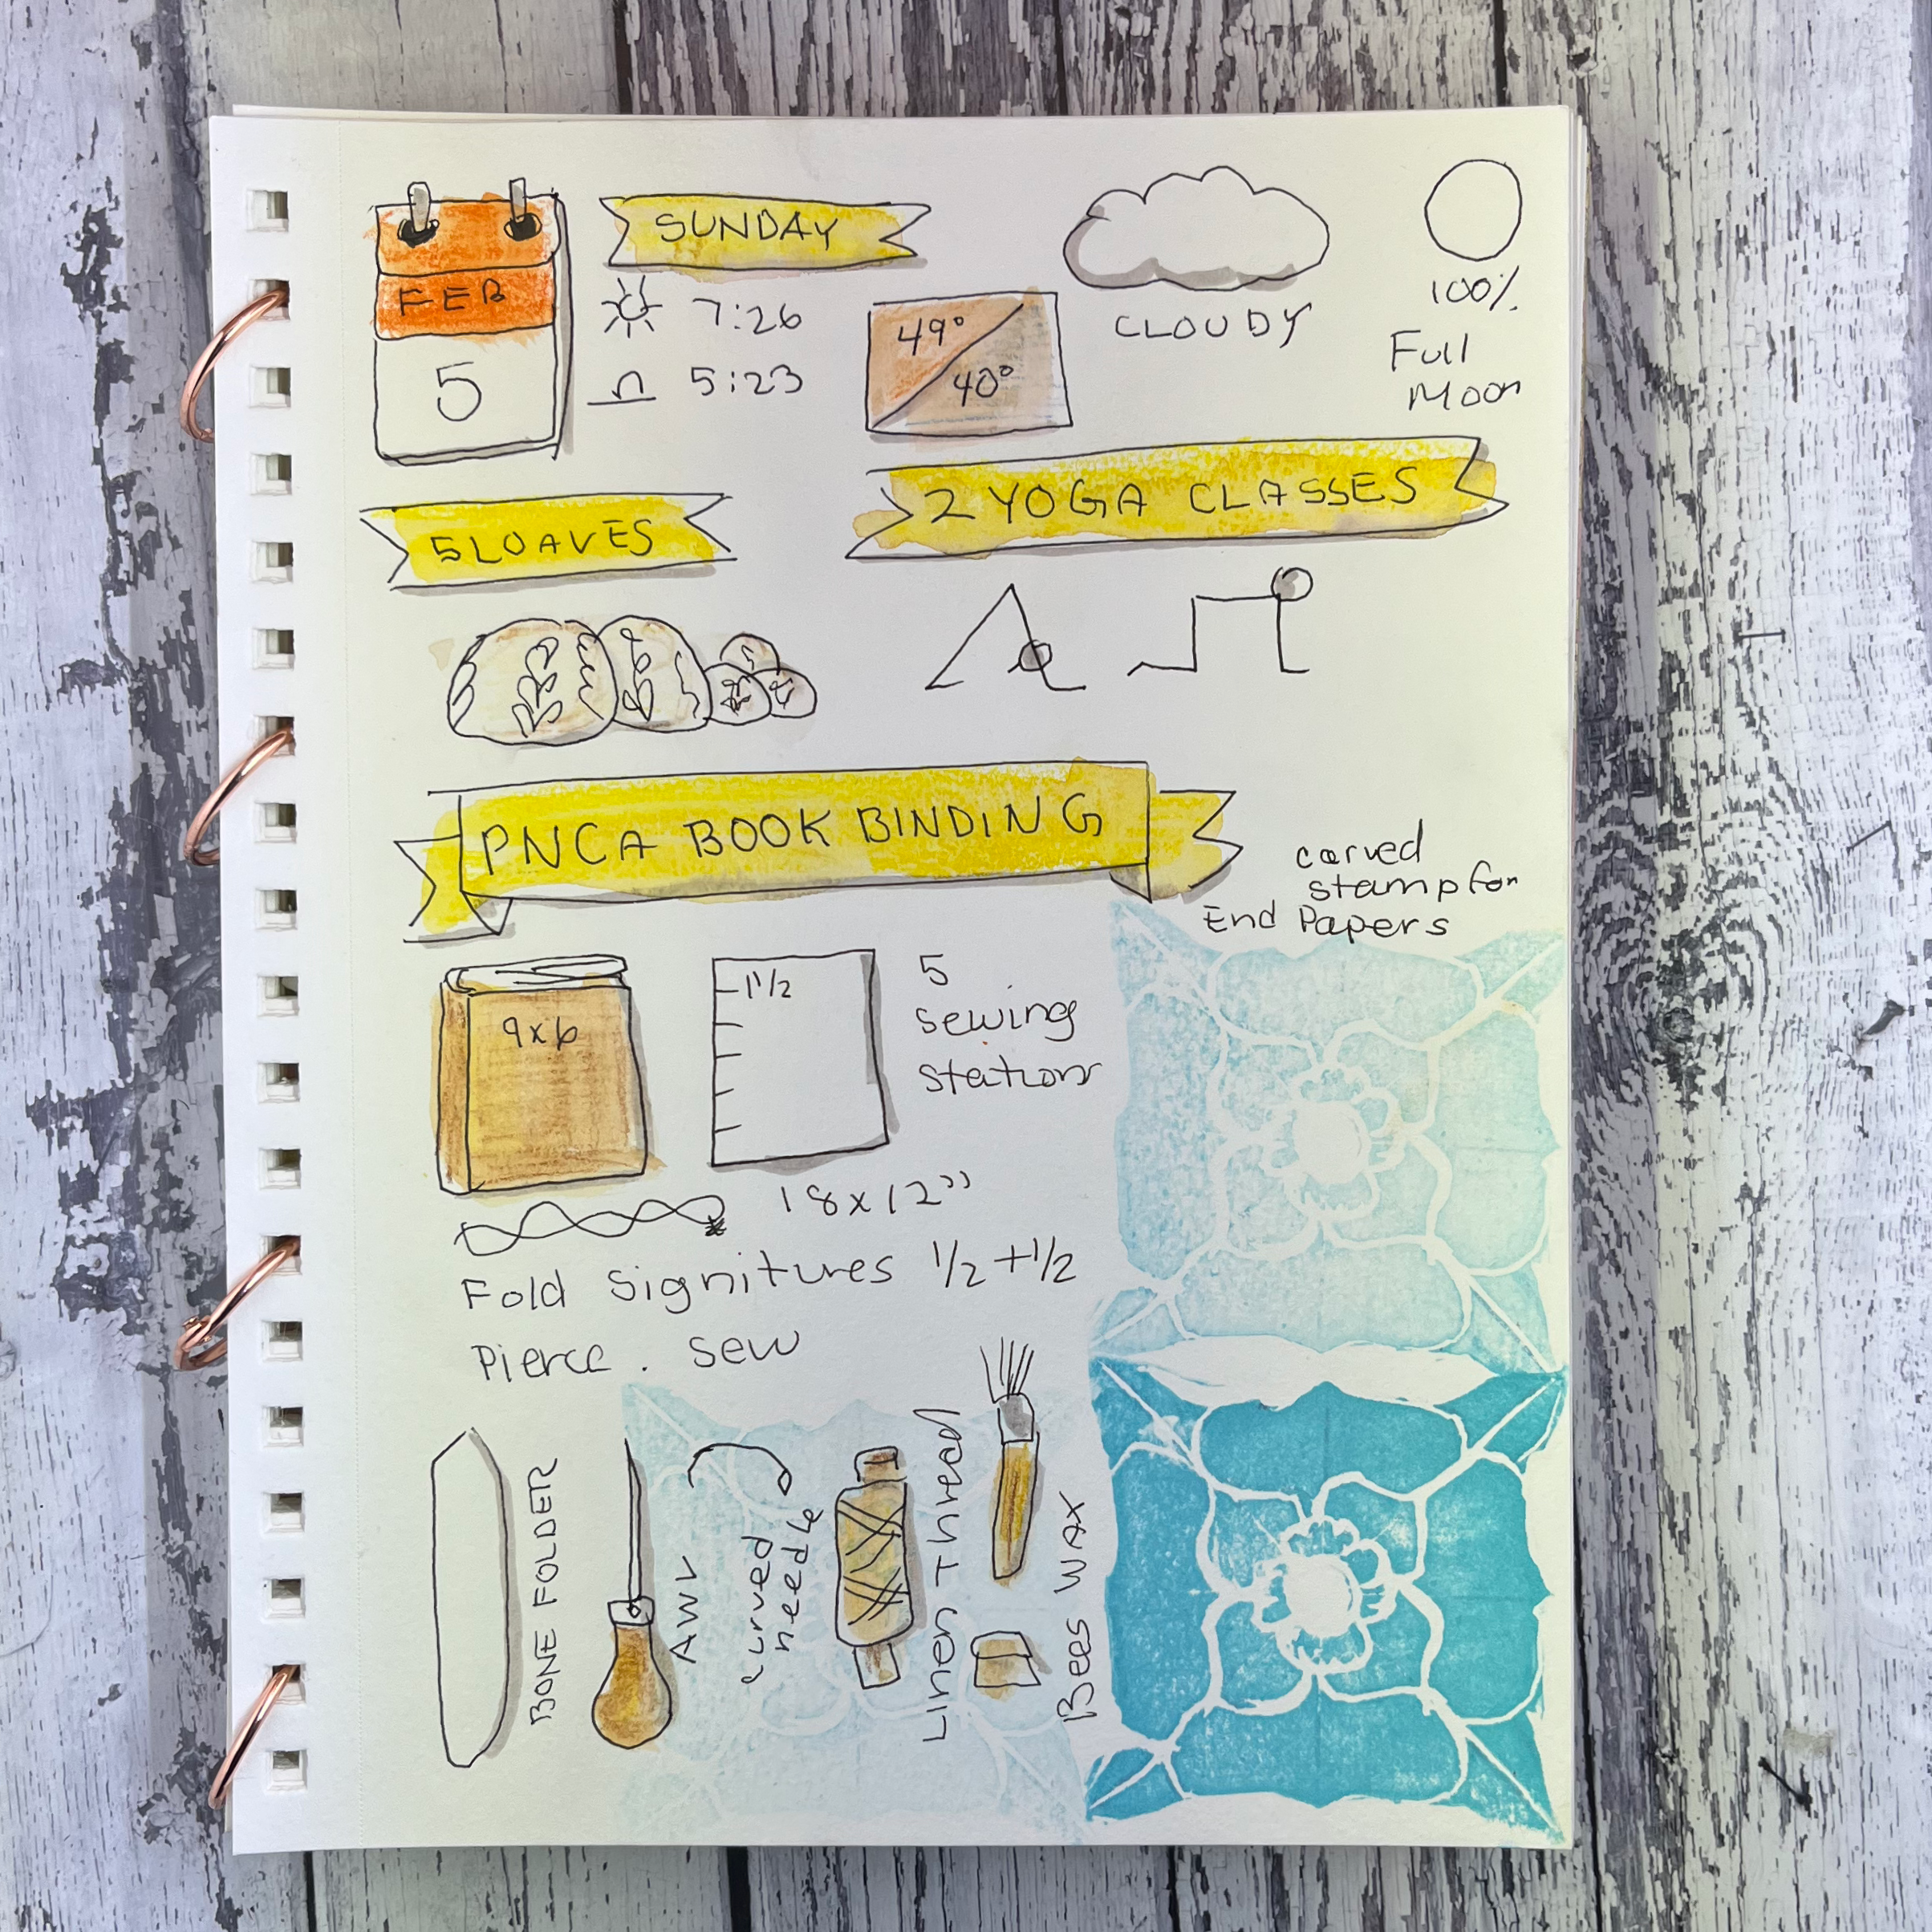 FEB
5
SUNDAY
7:26
5:23
49°
40°
CLOUDY
100%
Full
Moon
5 LOAVES
2 YOGA CLASSES
PNCA BOOK BINDING
carved
stamp for
End Papers
9x6
1 1/2
5
sewing
stations
18x12"
Fold Signitures 1/2 + 1/2
Pierce . Sew
BONE FOLDER
AWL
curved
needle
Linen Thread
Bees WAX